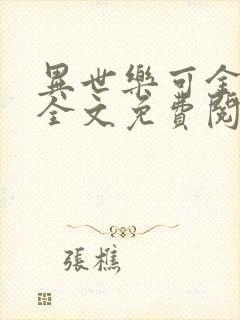 異世樂可全
全文免費閱
張樵